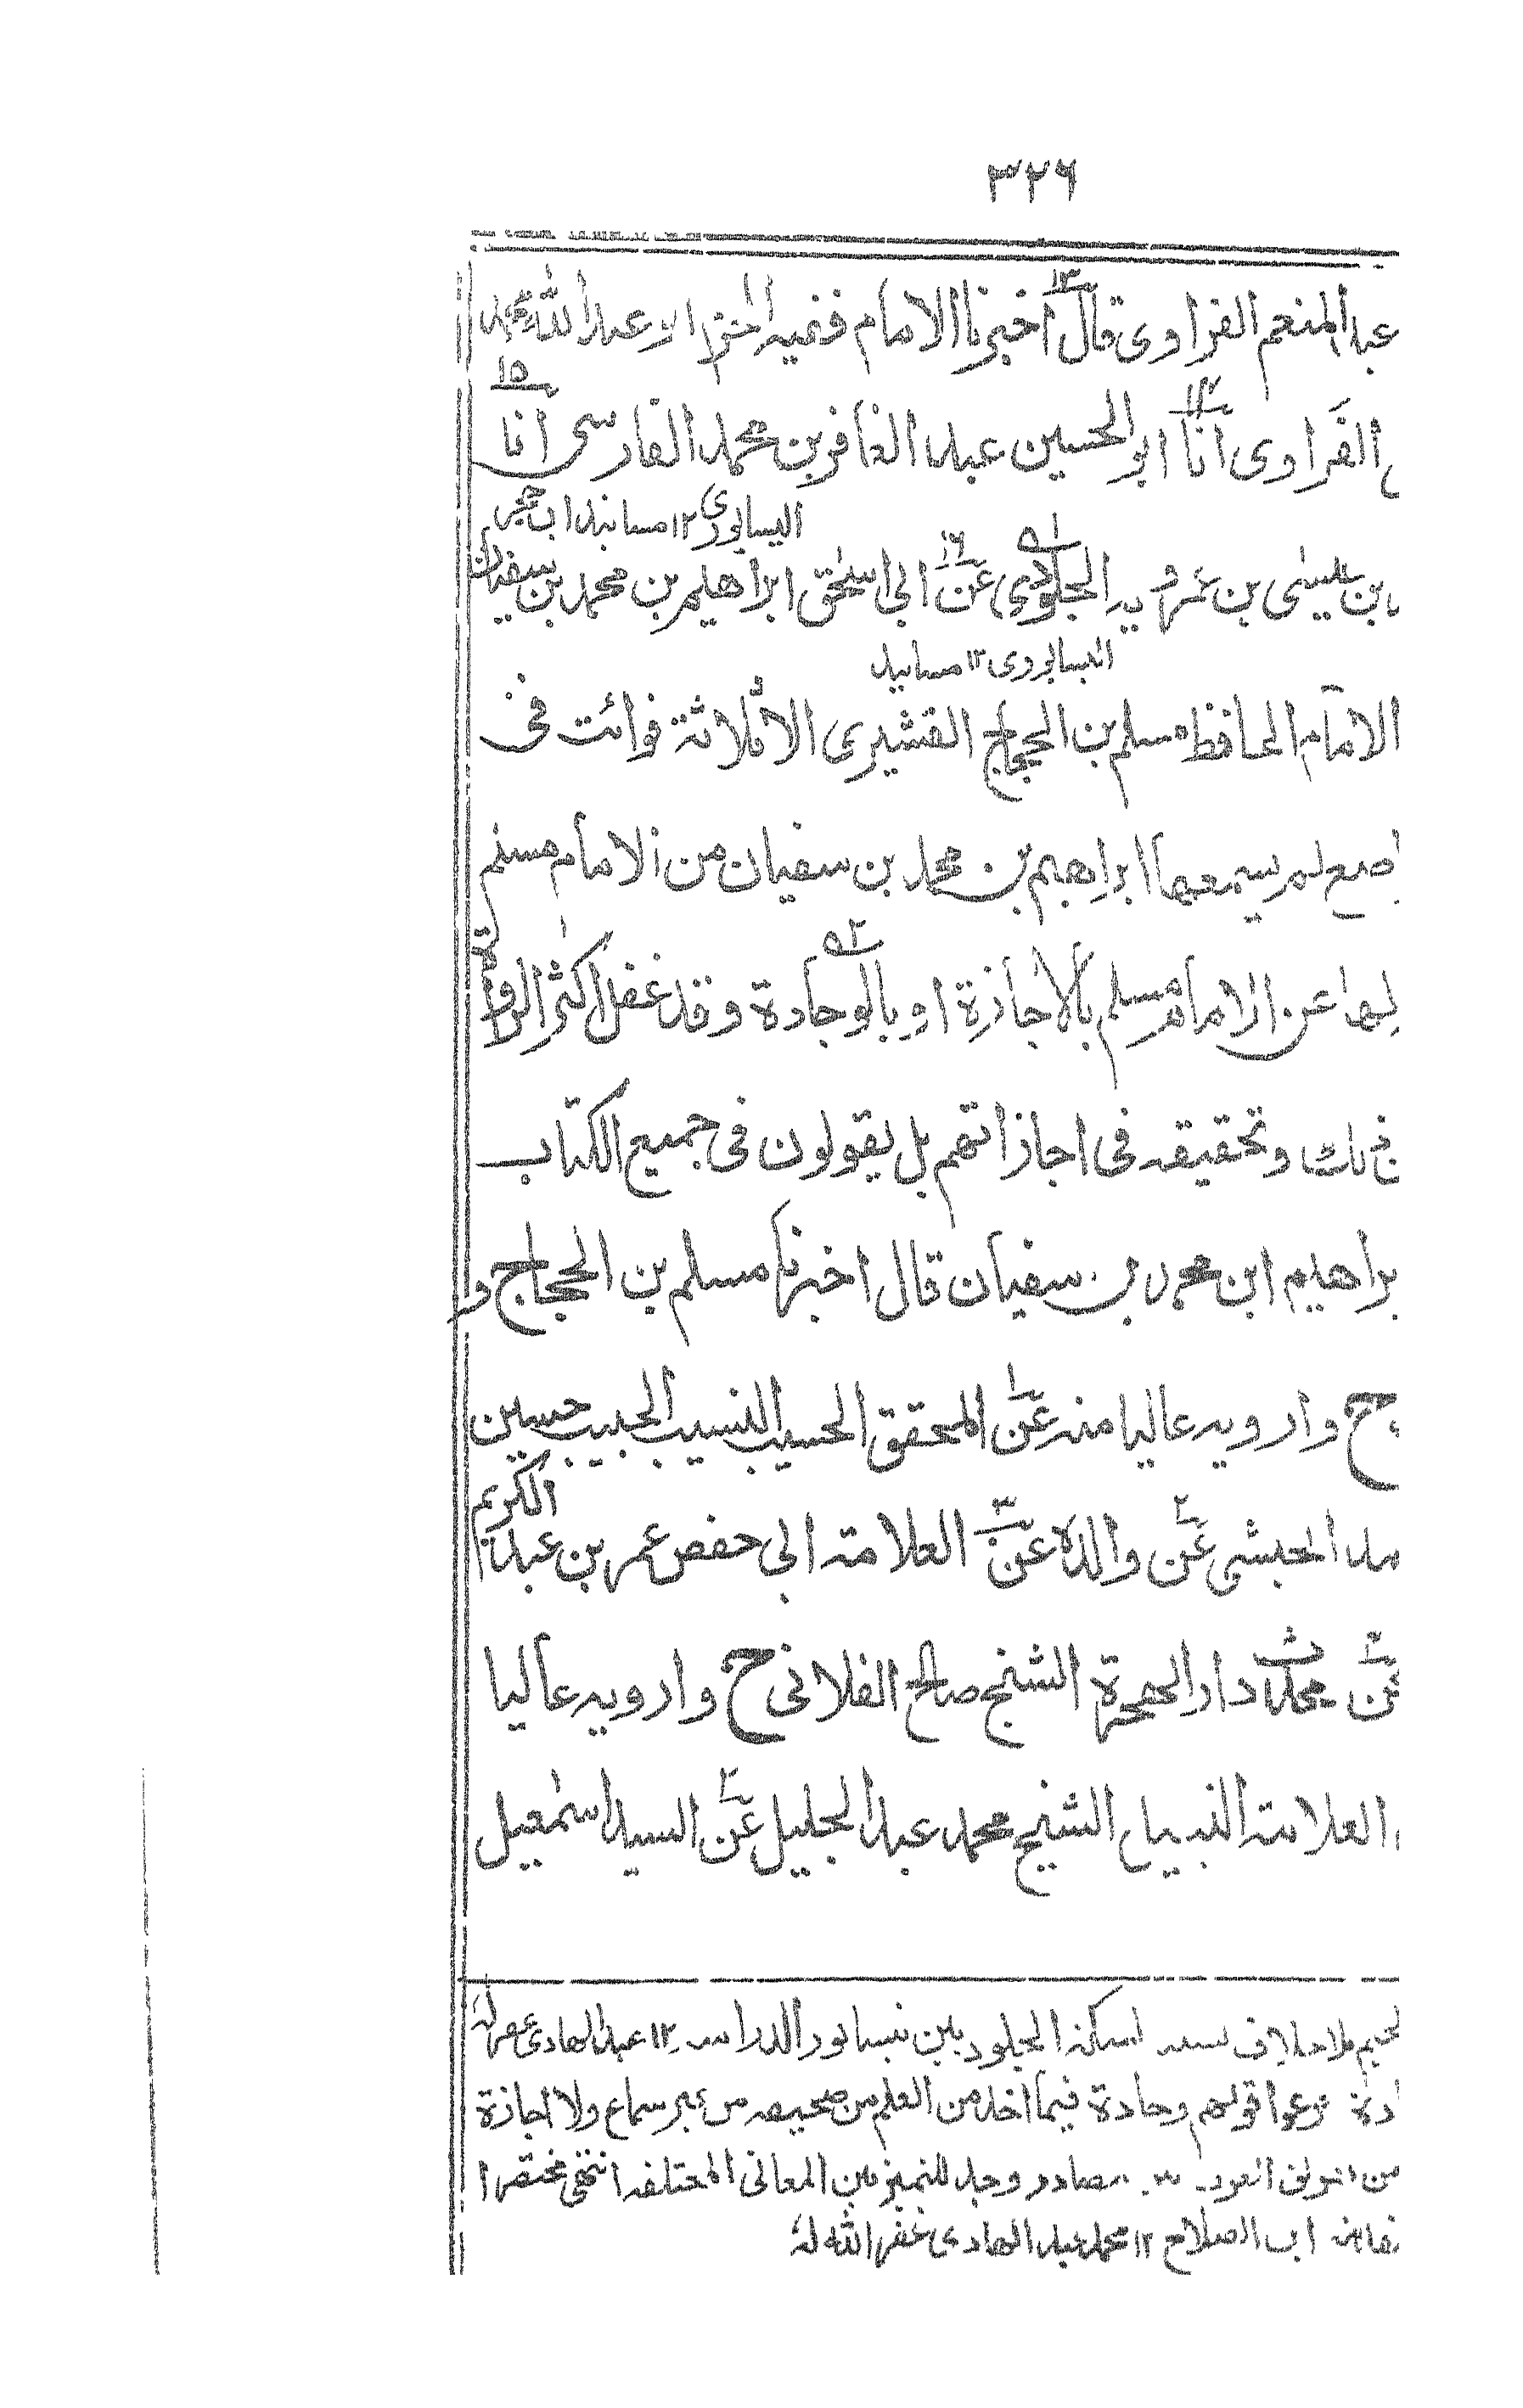 ٣٢٦
عبد المنعم الفراوى قال اخبرنا الامام فقيه الحرم ابو عبد الله محمد
١٣
الفراوى انا ابو الحسين عبد الغافر بن محمد الفارسى انا
١٤ ١٥
النيسابورى ١٢ مسانيد ابن حجر
بن عيسى بن عمرويه الجلودى عن ابى اسحق ابراهيم بن محمد بن سفيان
١٦
النيسابورى ١٢ مسانيد
الامام الحافظ مسلم بن الحجاج القشيرى الا ثلاثة فوائت فى
لم يسمعها ابراهيم بن محمد بن سفيان من الامام مسلم
عن الامام مسلم بالاجازة او بالوجادة وقد غفل اكثر الرواة
وتحقيقه فى اجازاتهم بل يقولون فى جميع الكتاب
براهيم ابن محمد بن سفيان قال اخبرنا مسلم بن الحجاج و
ح وارويه عاليا منه عن المحقق الحسيب النسيب الحبيب حسين
الحبشى عن والده عن العلامة ابى حفص عمر بن عبد الكريم
عن محدث دار الهجرة الشيخ صالح الفلانى ح وارويه عاليا
العلامة النبيل الشيخ محمد عبد الجليل عن السيد اسمعيل
الجيم بلا خلاف نسبه لسكة الجلوديين نيسابور الدارسة ١٢ عبد الهادى غفر له
قولهم وجادة فيما اخذ من العلم من صحيفه من غير سماع ولا اجازة
من تفريق العرب بين مصادر وجد للتميز بين المعانى المختلفه انتهى مختصرا
ابن الصلاح ١٢ محمد عبد الهادى غفر الله له